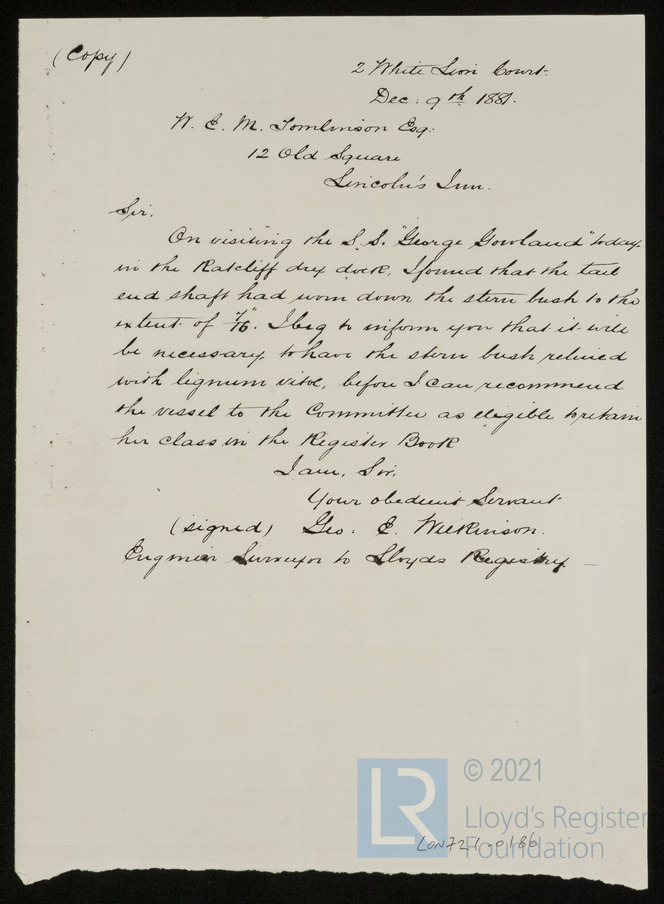 (Copy)
2 White Lion Court.
Dec: 9th 1881.
W. E. M. Tomlinson Esq:
12 Old Square
Lincoln's Inn.
Sir,
On visiting the S.S. "George Gowland" today
in the Ratcliff dry dock, I found that the tail
end shaft had worn down the stern bush to the
extent of 7/16". I beg to inform you that it will
be necessary, to have the stern bush relined
with lignum vitæ, before I can recommend
the vessel to the Committee as eligible to retain
her class in the Register Book
I am, Sir,
Your obedient Servant
(signed) Geo. E. Wilkinson.
Engineer Surveyor to Lloyds Registry
LR
© 2021
Lloyd's Register
Foundation
LON721-0186